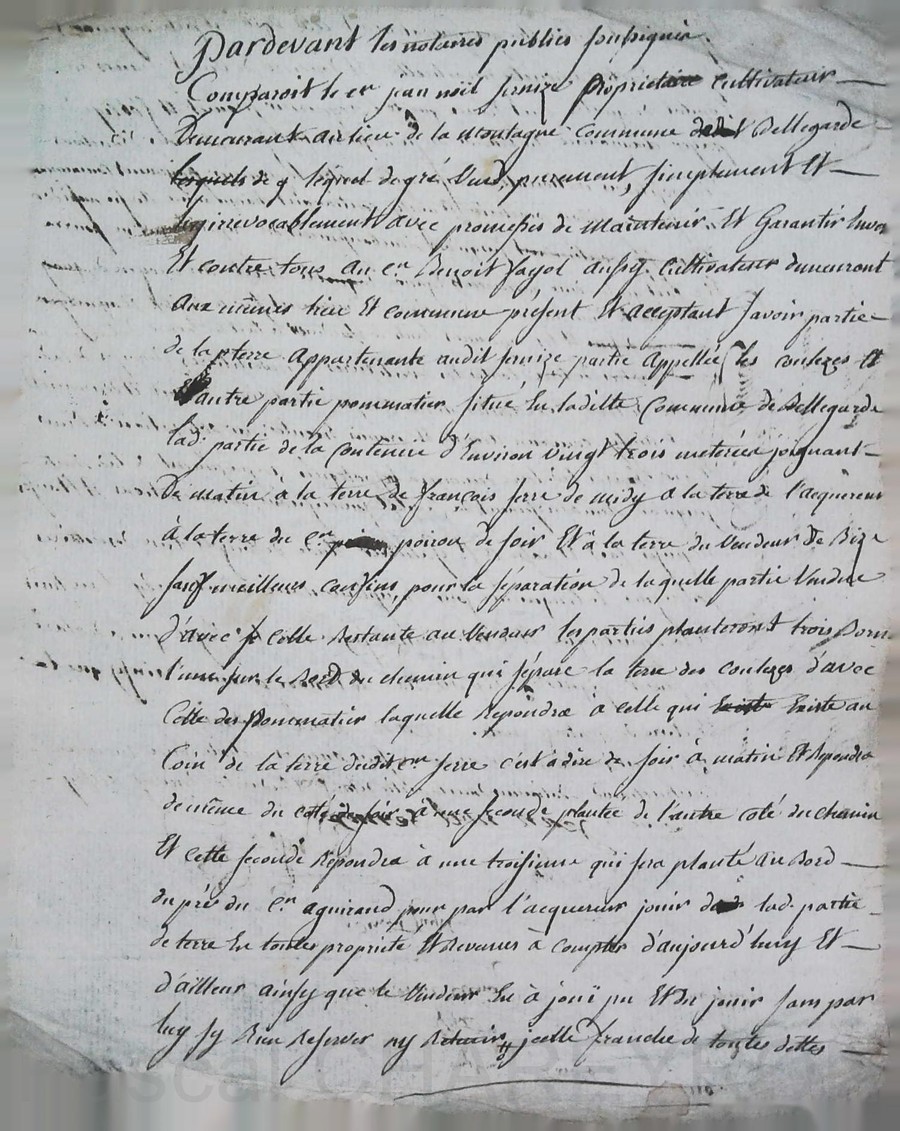 Pardevant les notaires publics soussignés
Comparoit le cn jean noël fernize Propriétaire Cultivateur
Demeurant au lieu de la montagne Commune de Bellegarde
lequel de gré Vend purement, simplement Et
irrevocablement avec promesses de Maintenir Et Garantir Envers
Et contre tous au cn Benoit fayol aussy Cultivateur demeurant
aux mêmes lieu Et commune présent Et acceptant Savoir partie
de la terre appartenante audit fernize partie Appellée les coulezes Et
l'autre partie pommatier située En ladette Commune de Bellegarde
lad. partie de la Contenue d'Environ vingt trois meterées joignant
De matin à la terre de françois ferre de midy à la terre de l'acquereur
à la terre du cn poirou de soir Et à la terre du Vendeur De Bize
sauf meilleurs confins, pour la séparation de laquelle partie Vendue
d'avec Celle Restante au Vendeur les parties planteront trois Borne
l'une sur le Bord du chemin qui sépare la terre des coulezes d'avec
Celle des pommatier laquelle Repondra à celle qui Existe au
Coin de la terre dudit cn ferre c'est à dire de soir à matin Et Repondra
de même du coté de soir à une seconde plantée de l'autre coté du chemin
Et cette seconde Repondra à une troisieme qui sera planté au Bord
du prés du cn aguiraud pour par l'acquereur jouir de lad. partie
de terre En toutes proprieté Et Revenus à compter d'aujourd'huy Et
d'ailleur ainsy que le Vendeur En à joui pu Et du jouir sans par
luy sy Rien Reserver ny Retenir, jcelle franche de toutes dettes